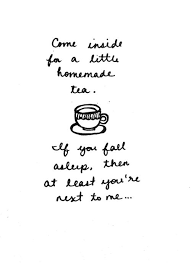 Come inside
for a little
homemade
tea.
If you fall
asleep, then
at least you're
next to me...